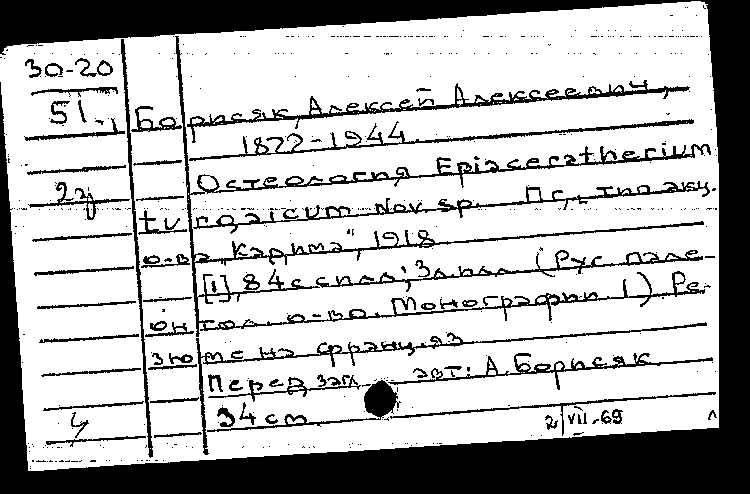 30-20
51-1 Борисяк, Алексей Алексеевич,
1872-1944.
2э Остеология Epiaceratherium
turgaicum Nov. sp. Пг., типо акц.
о-ва "Кадима", 1918
[1], 84 с с илл; 3 л илл (Рус пале-
онтол. о-во. Монографии 1) Ре-
зюме на франц. яз
Перед загл авт: А. Борисяк
34 см
2/VII-69